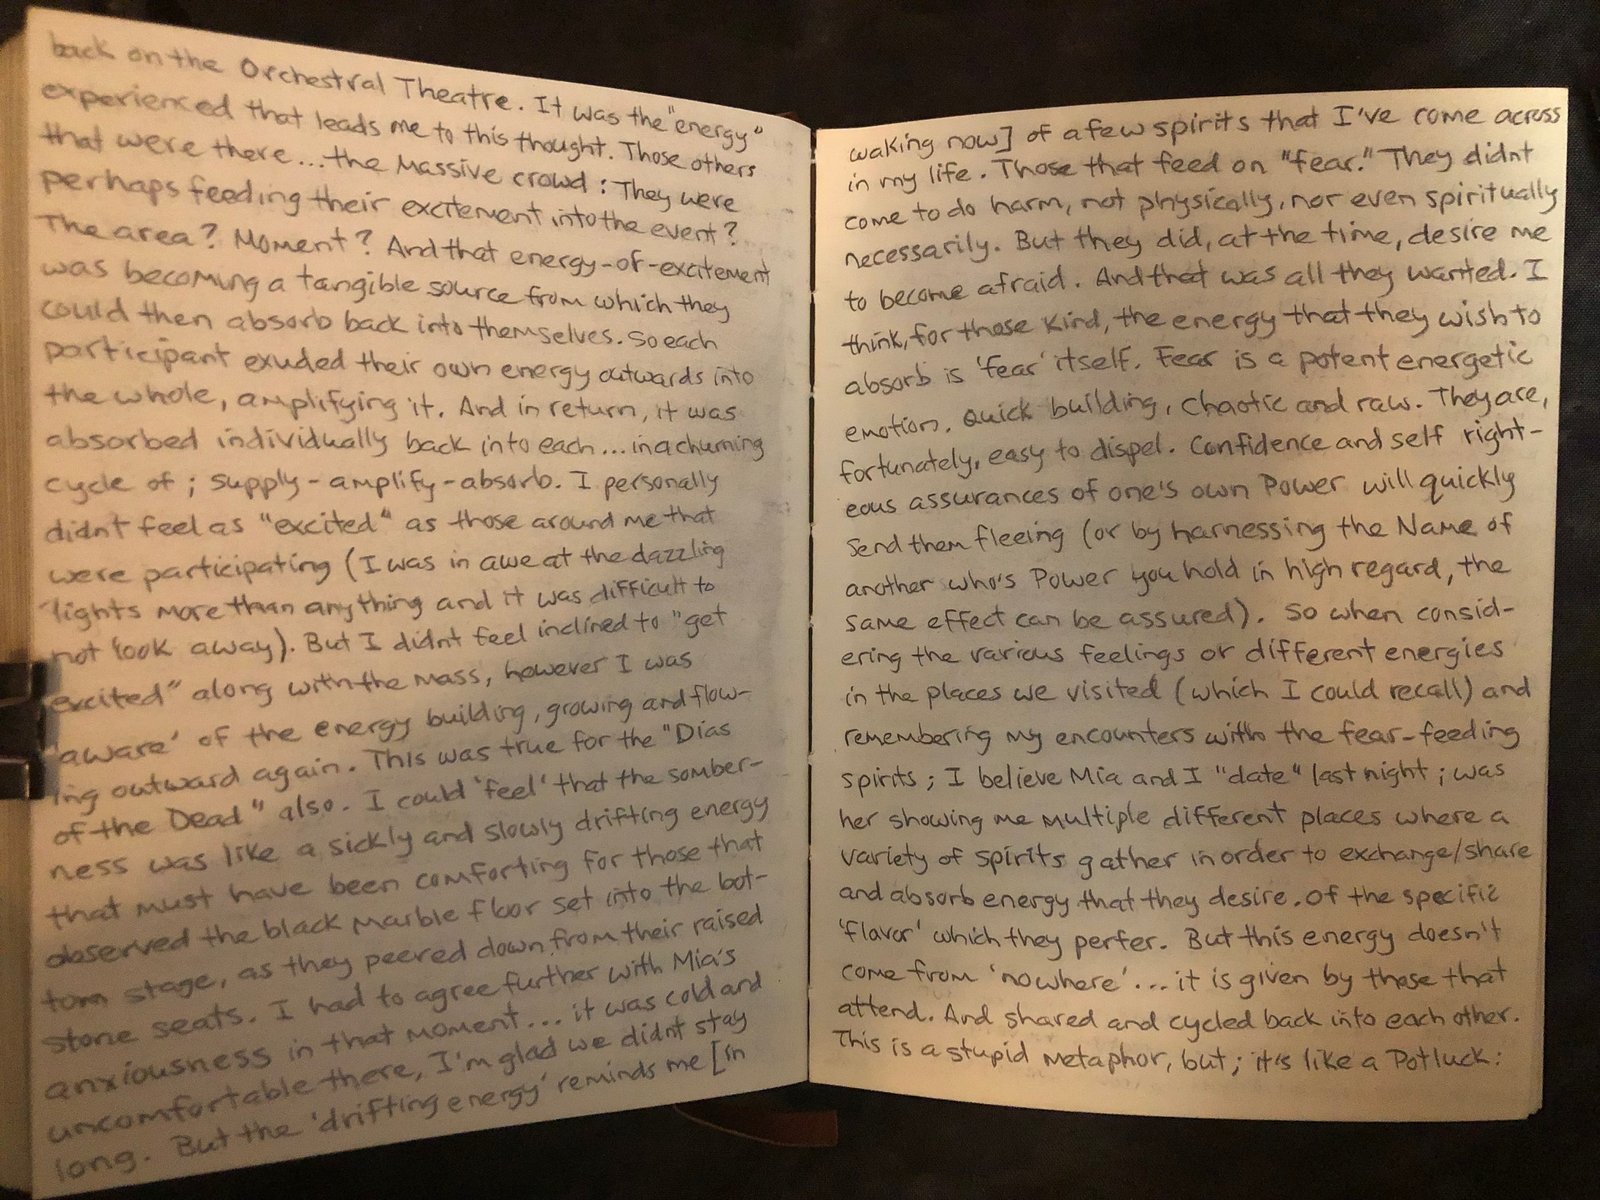 back on the Orchestral Theatre. It was the "energy"
experienced that leads me to this thought. Those others
that were there...the Massive crowd: They were
perhaps feeding their excitement into the event?
The area? Moment? And that energy-of-excitement
was becoming a tangible source from which they
could then absorb back into themselves. So each
participant exuded their own energy outwards into
the whole, amplifying it. And in return, it was
absorbed individually back into each...in a churning
cycle of; supply-amplify-absorb. I personally
didnt feel as "excited" as those around me that
were participating (I was in awe at the dazzling
lights more than anything and it was difficult to
not look away). But I didnt feel inclined to "get
excited" along with the mass, however I was
'aware' of the energy building, growing and flow-
ing outward again. This was true for the "Dias
of the Dead" also. I could 'feel' that the somber-
ness was like a sickly and slowly drifting energy
that must have been comforting for those that
observed the black marble floor set into the bot-
tom stage, as they peered down from their raised
stone seats. I had to agree further with Mia's
anxiousness in that moment... it was cold and
uncomfortable there, I'm glad we didnt stay
long. But the 'drifting energy' reminds me [in
waking now] of a few spirits that I've come across
in my life. Those that feed on "fear." They didnt
come to do harm, not physically, nor even spiritually
necessarily. But they did, at the time, desire me
to become afraid. And that was all they wanted. I
think, for those kind, the energy that they wish to
absorb is 'fear' itself. Fear is a potent energetic
emotion. Quick building, Chaotic and raw. They are,
fortunately, easy to dispel. Confidence and self right-
eous assurances of one's own Power will quickly
send them fleeing (or by harnessing the Name of
another who's Power you hold in high regard, the
same effect can be assured). So when consid-
ering the various feelings or different energies
in the places we visited (which I could recall) and
remembering my encounters with the fear-feeding
spirits; I believe Mia and I "date" last night; was
her showing me multiple different places where a
variety of spirits gather in order to exchange/share
and absorb energy that they desire. Of the specific
'flavor' which they perfer. But this energy doesn't
come from 'nowhere'... it is given by those that
attend. And shared and cycled back into each other.
This is a stupid metaphor, but; it's like a Potluck: